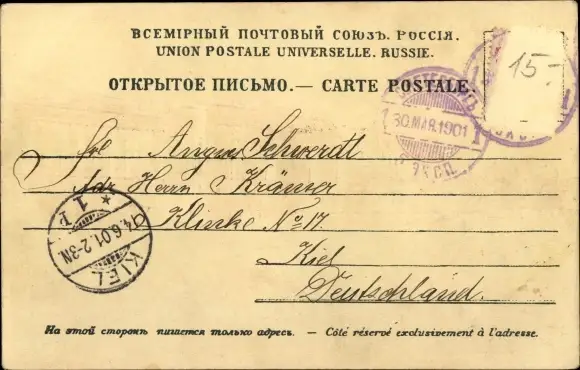 ВСЕМІРНЫЙ ПОЧТОВЫЙ СОЮЗЪ. РОССІЯ.
UNION POSTALE UNIVERSELLE. RUSSIE.
ОТКРЫТОЕ ПИСЬМО.— CARTE POSTALE.
15-
30.МАР.1901
1
ЭКСП.
Angnes Schwerdt
Adr Herrn Krämer
Klinke No 17.
Kiel
Deutschland.
KIEL
4.6.01.2-3N
* 1 *
На этой сторонѣ пишется только адресъ. — Côté réservé exclusivement à l'adresse.